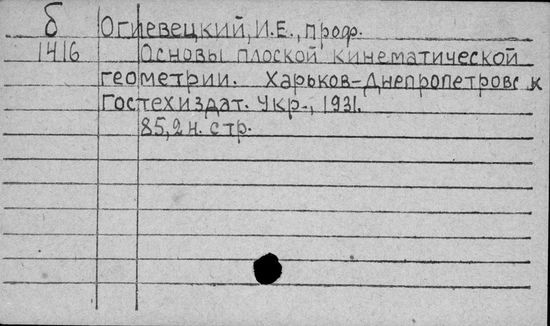 б Огиевецкий, И.Е., проф.
1416 Основы плоской кинематической
геометрии. Харьков-Днепропетровск
Гостехиздат. Укр., 1931.
85,2 н. стр.